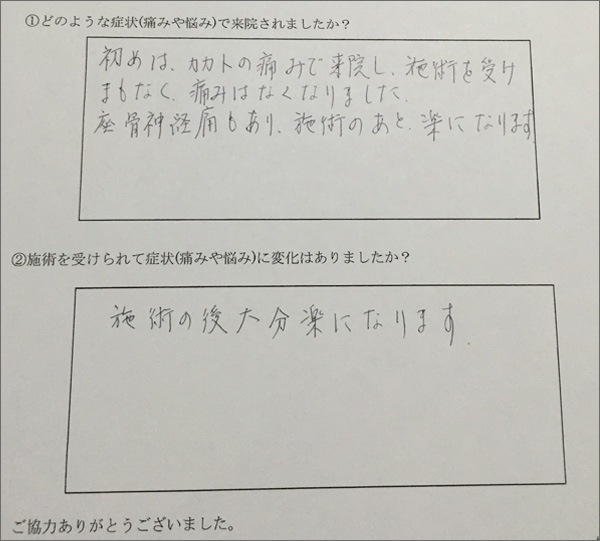 ①どのような症状(痛みや悩み)で来院されましたか？
初めは、カカトの痛みで来院し、施術を受け
まもなく、痛みはなくなりました。
座骨神経痛もあり、施術のあと、楽になります
②施術を受けられて症状(痛みや悩み)に変化はありましたか？
施術の後大分楽になります。
ご協力ありがとうございました。